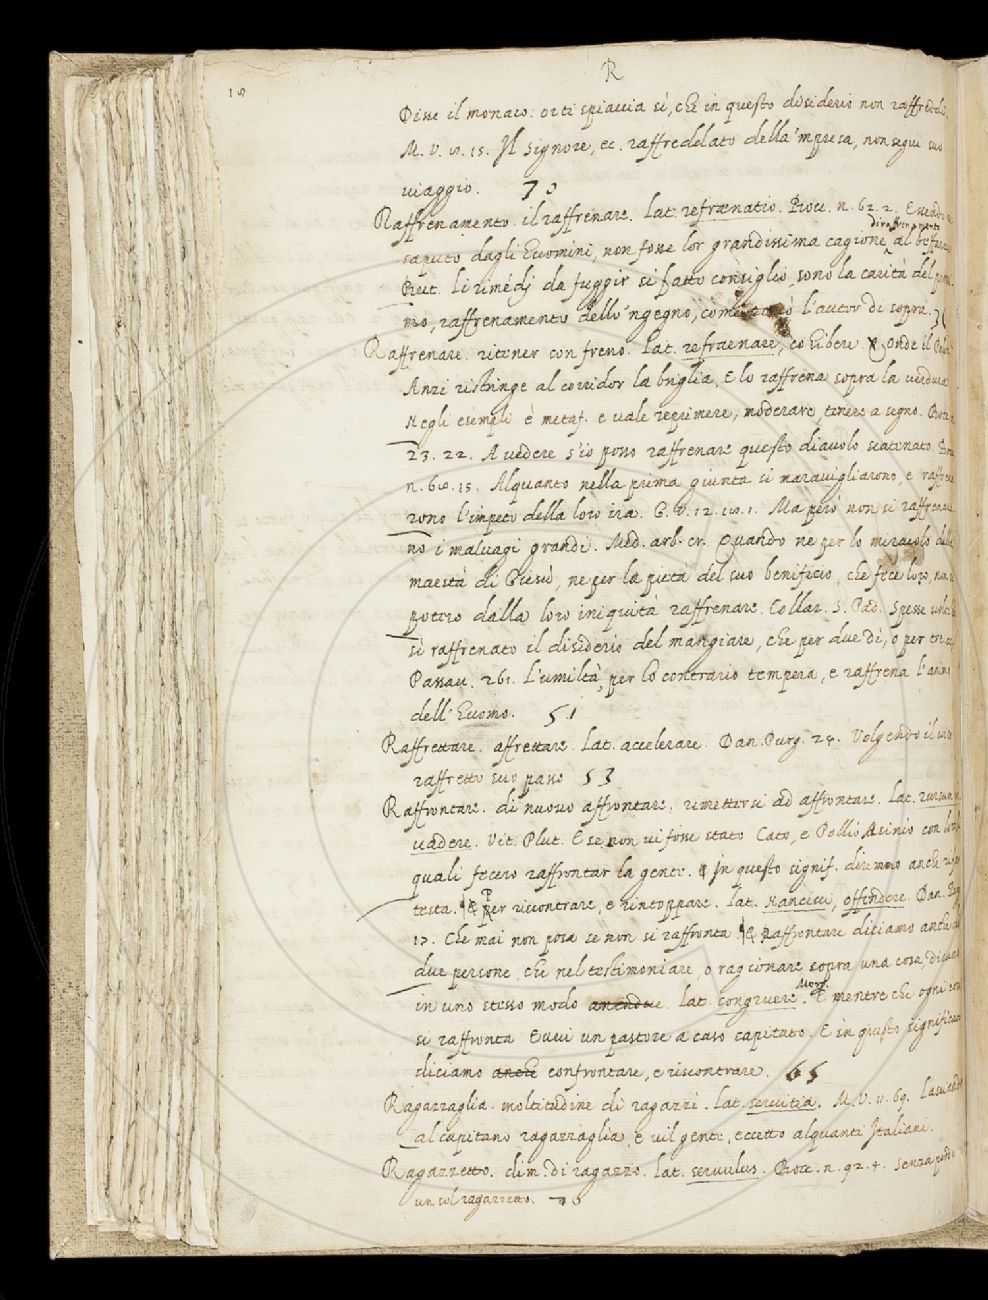 R
Disse il monaco. or ti spiaccia sì, che in questo disiderio non raffreddi.
M. V. 15. Il Signore, ec. raffredelato della 'mpresa, non seguì suo
viaggio. 30
Raffrenamento. il raffrenare. Lat. refrænatio. Bocc. n. 62. 2. Essendo
di raffrenamento
saputo dagli huomini, non fosse lor grandissima cagione al beffare
But. li rimedj da fuggir sì fatto consiglio, sono la carità del
mo, raffrenamento dello 'ngegno, come l'autor di sopra. 31
Raffrenare. ritener con freno. Lat. refraenare, cohibere. onde il
Anzi ristringe al corridor la briglia, E lo raffrena sopra la verdura
Negli esempli è metaf. e vale reprimere, moderare, tenere a segno.
23. 22. A vedere s'io posso raffrenare questo diavolo scatenato.
n. 60. 15. Alquanto nella prima giunta si maravigliarono, e raffrena
rono l'impeto della loro ira. G. V. 12. Ma però non si raffrena
no i malvagi grandi. Med. arb. cr. Quando ne per lo miracolo della
maestà di Giesù, ne per la pieta del suo benificio, che fece loro,
potero dalla loro iniquità raffrenare. Collaz. S. Pad. Spesse volte
sì raffrenato il disiderio del mangiare, che per due dì, o per tre
Passav. 261. L'umiltà, per lo contrario tempera, e raffrena l'animo
dell'huomo. 51
Raffrettare. affrettare. Lat. accelerare. Dan. Purg. 24. Volgendo il viso
raffretto suo passo 53
Raffrontare. di nuovo affrontare, rimettersi ad affrontare. Lat. rursum
vadere. Vit. Plut. E se non vi fosse stato Cato, e Pollio Asinio con loro
quali fecero raffrontar la gente. In questo signif. diremmo anche
testa. Per riscontrare, e rintoppare. Lat. Nancisci, offendere. Dan.
17. Che mai non posa se non si raffronta Raffrontare diciamo anche
due persone, che nel testimoniare, o ragionare sopra una cosa, dicano
Morg.
in uno stesso modo. Lat. congruere. E mentre che ogni
si raffronta Evvi un pastore a caso capitato. E in questo significato
diciamo anche confrontare, e riscontrare. 65
Ragazzaglia. moltitudine di ragazzi. Lat. servitia. M. V. 11. 69. Lasciando
al capitano ragazzaglia, e vil gente, eccetto alquanti Italiani.
Ragazzetto. dim. di ragazzo. Lat. servulus. Bocc. n. 92. 4. Senza
un sol ragazzetto. 70